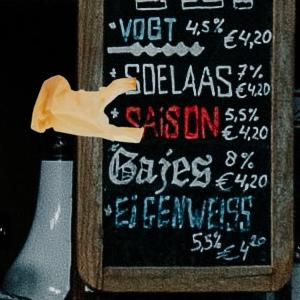 VOGT 4,5% €4,20
* SOELAAS 7% €4,20
* SAISON 5,5% €4,20
Gajes 8% €4,20
* EIGENWEISS
5,5% €4,20